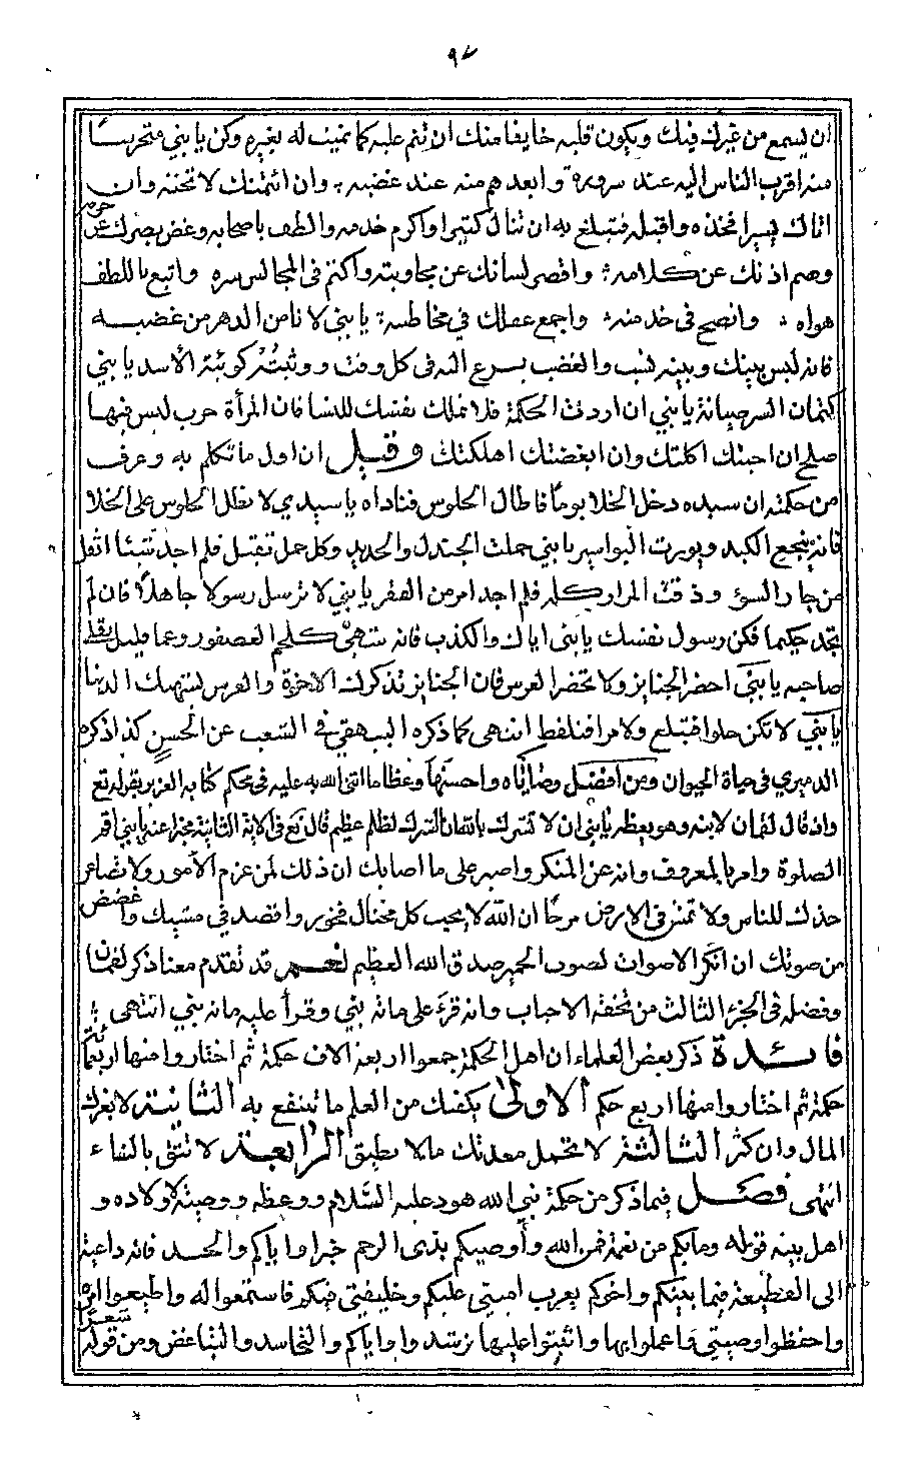 ٩٧
ان يسمع من غيرك فيك ويكون قلبه خايفا منك ان تنم عليه كما نميت له بغيره وكن يا بني متحرسا
منه اقرب الناس اليه عند سروره وابعدهم منه عند غضبه وان ائتمنك لا تخنه وان
اتاك يسيرا فخذه واقبله فتبلغ به ان تنال كثيرا واكرم خدمه والطف باصحابه وغض بصرك عن حرمه
وصم اذنك عن كلامه واقصر لسانك عن مجاوبته واكتم في المجالس سره واتبع باللطف
هواه وانصح في خدمته واجمع عقلك في مخاطبته يا بني لا تامن الدهر من غضبه
فانه ليس بينك وبينه نسب والغضب يسرع اليه في كل وقت ووثبته كوثبة الأسد يا بني
كتمان السر صيانة يا بني ان اردت الحكمة فلا تملك نفسك للنسا فان المرأة حرب ليس فيها
صلح ان احبتك اكلتك وان ابغضتك اهلكتك وقيل ان اول ما تكلم به وعرف
من حكمته ان سيده دخل الخلا يوماً فاطال الجلوس فناداه يا سيدي لا تطل الجلوس على الخلا
فانه ينجع الكبد ويورث البواسير يا بني حملت الجندل والحديد وكل حمل ثقيل فلم اجد شيئا اثقل
من جار السوء وذقت المرار كله فلم اجد امر من الفقر يا بني لا ترسل رسولا جاهلاً فان لم
تجد حكيما فكن رسول نفسك يا بني اياك والكذب فانه شهي كلحم العصفور وعما قليل يقلي
صاحبه يا بني احضر الجنايز ولا تحضر العرس فان الجنايز تذكرك الاخرة والعرس تشهيك الدنيا
يا بني لا تكن حلوا فتبلع ولا مرا فتلفظ انتهى كما ذكره البيهقي في الشعب عن الحسن كذا ذكره
الدميري في حياة الحيوان ومن افضل وصاياه واحسنها وعظا ما اثنى الله به عليه في محكم كتابه العزيز بقوله تع
واذ قال لقمان لابنه وهو يعظه يا بني ان لا تشرك بالله ان الشرك لظلم عظيم قال تع في الاية الثانية مخبرا عنه يا بني اقم
الصلوة وامر بالمعروف وانه عن المنكر واصبر على ما اصابك ان ذلك لمن عزم الأمور ولا تصاعر
خدك للناس ولا تمش في الارض مرحاً ان الله لا يحب كل مختال فخور واقصد في مشيك واغضض
من صوتك ان انكر الاصوات لصوت الحمير صدق الله العظيم نعم قد تقدم معنا ذكر لقمان
وفضله في الجزء الثالث من تحفة الاحباب وانه قرئ على مائة بني وقرأ عليه مائة بني انتهى
فائدة ذكر بعض العلماء ان اهل الحكمة جمعوا اربعة الاف حكمة ثم اختاروا منها اربعمائة
حكمة ثم اختاروا منها اربع حكم الاولى يكفك من العلم ما تنتفع به الثانية لا يغرك
المال وان كثر الثالثة لا تحمل معدتك مالا يطيق الرابعة لا تثق بالنساء
انتهى فصل فيما ذكر من حكمة نبي الله هود عليه السلام ووعظه ووصيته لاولاده و
اهل بيته قوله ومابكم من نعمة فمن الله وأوصيكم بذي الرحم خيرا واياكم والحسد فانه داعية
الى القطيعة فيما بينكم واخوكم يعرب اميني عليكم وخليفتي فيكم فاستمعوا له واطيعوا امره
واحفظوا وصيتي واعملوا بها واثبتوا عليها ترشدوا واياكم والتحاسد والتباغض ومن قوله شعرا